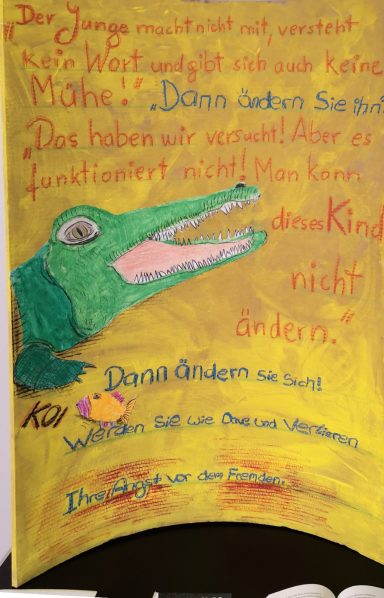 „Der Junge macht nicht mit, versteht
kein Wort und gibt sich auch keine
Mühe!“ „Dann ändern Sie ihn
„Das haben wir versucht! Aber es
funktioniert nicht! Man kann
dieses Kind
nicht
ändern.“
Dann ändern Sie sich!
KOI
Werden Sie wie Dave und verlieren
Ihre Angst vor dem Fremden.